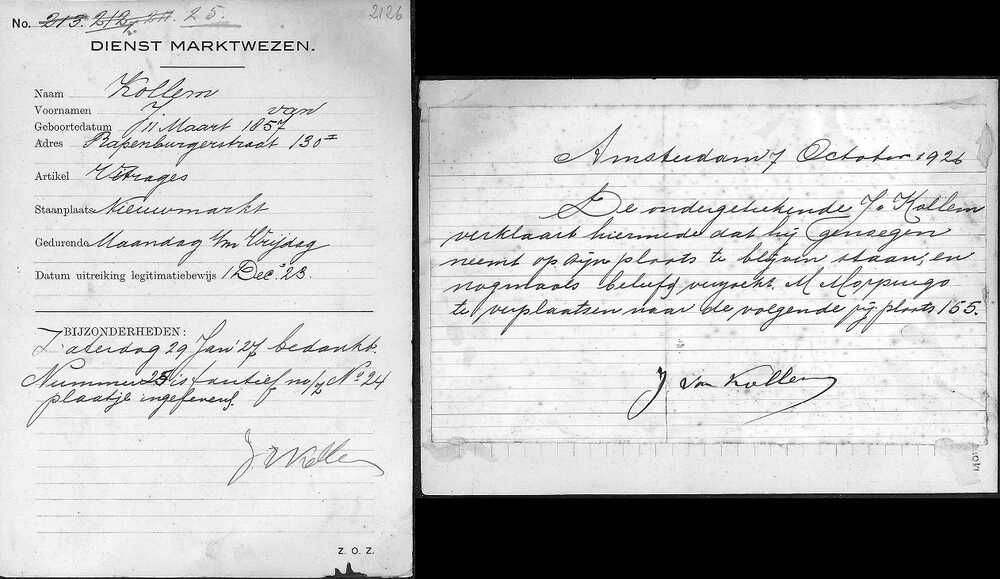 No. 213. 212. 211. 25.
2126
DIENST MARKTWEZEN.
Naam Kollem
Voornamen J. van
Geboortedatum 11 Maart 1857
Adres Rapenburgerstraat 130 I
Artikel Vitrages
Staanplaats Nieuwmarkt
Gedurende Maandag t/m Vrijdag
Datum uitreiking legitimatiebewijs 1 Dec. 23.
BIJZONDERHEDEN:
Zaterdag 29 Jan '27 bedankt.
Nummer 25 is No 24
plaatje ingeleverd.
J. v Kollem
Z. O. Z.
Amsterdam 7 October 1926
De ondergetekende J. v Kollem
verklaart hiermede dat hij genoegen
neemt op zijn plaats te blijven staan, en
nogmaals beleefd verzocht M Morpurgo
te verplaatsen naar de volgende rij plaats 155.
J. van Kollem